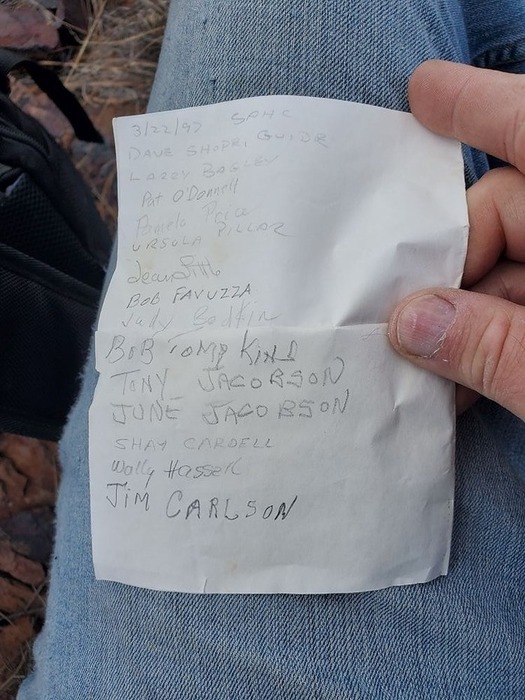 3/22/97 SAHC
DAVE SHOREL, GUIDE
LARRY BAGLEY
Pat O'Donnell
Pamela Price
URSULA PILLAR
BOB FAVUZZA
Judy Bodkin
BOB TOMPKINS
TONY JACOBSON
JUNE JACOBSON
SHAY CARDELL
Wally Hasser
JIM CARLSON